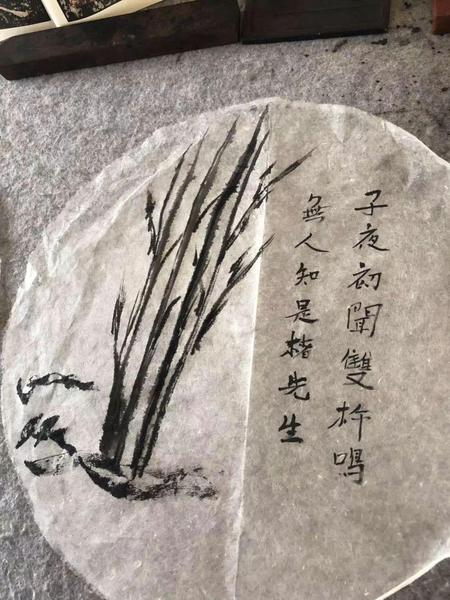 子夜初聞雙杵鳴
無人知是楷先生